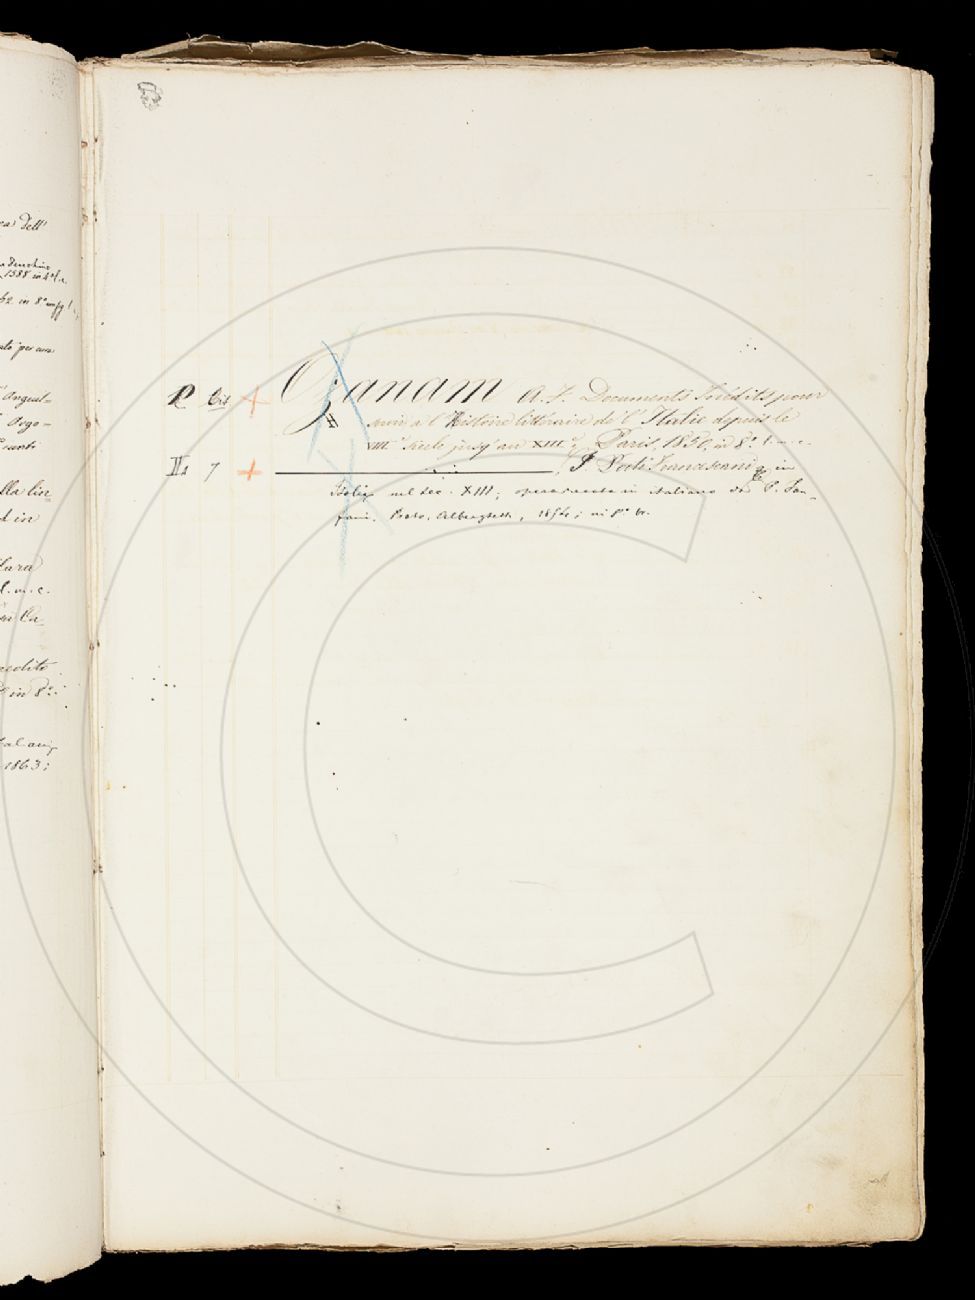 ca dell'
1588 in 4° l.
62 in 8°
ato per cura
Angeil=
Pogo=
santi
lla lin
d in
tura
l. m. c.
in Ca
nedito
in 8°:
1863;
R Cr4 + Ozanam A. F. Documents Inédits pour
servir à l'Histoire littéraire de l'Italie depuis le
VIII.e siècle jusq'au XIII.e Paris, 1850, in 8.° l. m. c.
IL 7 + ——— . I Poeti Francescani in
Italia nel sec. XIII; opera recata in italiano da P. Fan=
fani. Prato, Alberghetti, 1854; in 8.° br.